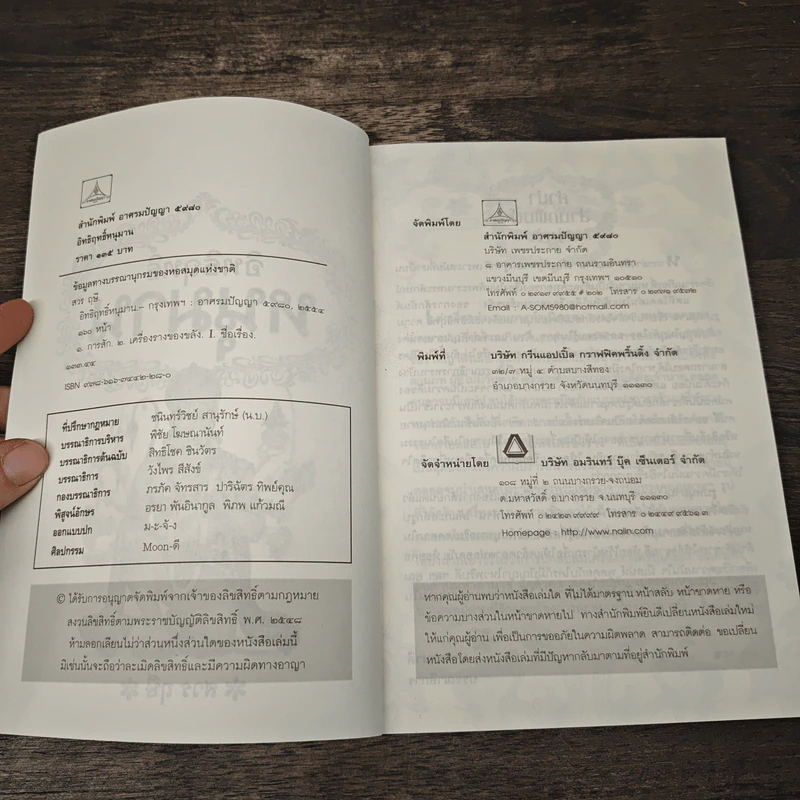 สำนักพิมพ์ อาศรมปัญญา ๕๙๘๐
อิทธิฤทธิ์หนุมาน
ราคา ๑๓๕ บาท
ข้อมูลทางบรรณานุกรมของหอสมุดแห่งชาติ
สวร ฤษี.
อิทธิฤทธิ์หนุมาน.– กรุงเทพฯ : อาศรมปัญญา ๕๙๘๐, ๒๕๕๔
๑๖๐ หน้า
๑. การสัก. ๒. เครื่องรางของขลัง. I. ชื่อเรื่อง.
๑๓๓.๔๔
ISBN ๙๗๘-๖๑๖-๗๔๔๒-๒๘-๐
ที่ปรึกษากฎหมาย ชนินทร์วิชย์ สานุรักษ์ (น.บ.)
บรรณาธิการบริหาร พิชัย โฆษณานันท์
บรรณาธิการต้นฉบับ สิทธิโชค ชินวัตร
บรรณาธิการ วังไพร สีสังข์
กองบรรณาธิการ ภรภัค จัทรสาร ปาริฉัตร ทิพย์คุณ
พิสูจน์อักษร อรยา พันอินากูล พิภพ แก้วมณี
ออกแบบปก ม-ะ-จ้-ง
ศิลปกรรม Moon-ดี
© ได้รับการอนุญาตจัดพิมพ์จากเจ้าของลิขสิทธิ์ตามกฎหมาย
สงวนลิขสิทธิ์ตามพระราชบัญญัติลิขสิทธิ์ พ.ศ. ๒๕๔๘
ห้ามลอกเลียนไม่ว่าส่วนหนึ่งส่วนใดของหนังสือเล่มนี้
มิเช่นนั้นจะถือว่าละเมิดลิขสิทธิ์และมีความผิดทางอาญา
จัดพิมพ์โดย
สำนักพิมพ์ อาศรมปัญญา ๕๙๘๐
บริษัท เพชรประกาย จำกัด
๘ อาคารเพชรประกาย ถนนรามอินทรา
แขวงมีนบุรี เขตมีนบุรี กรุงเทพฯ ๑๐๕๑๐
โทรศัพท์ ๐ ๒๙๑๗ ๙๙๕๕ # ๒๐๒ โทรสาร ๐ ๒๙๑๘ ๙๕๓๒
Email : A-SOM5980@hotmail.com
พิมพ์ที่ บริษัท กรีนแอปเปิ้ล กราฟฟิคพริ้นติ้ง จำกัด
๓๒/๓ หมู่ ๔ ตำบลบางสีทอง
อำเภอบางกรวย จังหวัดนนทบุรี ๑๑๑๓๐
จัดจำหน่ายโดย บริษัท อมรินทร์ บุ๊ค เซ็นเตอร์ จำกัด
๑๐๘ หมู่ที่ ๒ ถนนบางกรวย-จงถนอม
ต.มหาสวัสดิ์ อ.บางกรวย จ.นนทบุรี ๑๑๑๓๐
โทรศัพท์ ๐ ๒๔๒๓ ๙๙๙๙ โทรสาร ๐ ๒๔๔๙ ๙๕๖๑ ๓
Homepage : http://www.naiin.com
หากคุณผู้อ่านพบว่าหนังสือเล่มใด ที่ไม่ได้มาตรฐาน หน้าสลับ หน้าขาดหาย หรือ
ข้อความบางส่วนในหน้าขาดหายไป ทางสำนักพิมพ์ยินดีเปลี่ยนหนังสือเล่มใหม่
ให้แก่คุณผู้อ่าน เพื่อเป็นการขออภัยในความผิดพลาด สามารถติดต่อ ขอเปลี่ยน
หนังสือโดยส่งหนังสือเล่มที่มีปัญหากลับมาตามที่อยู่สำนักพิมพ์